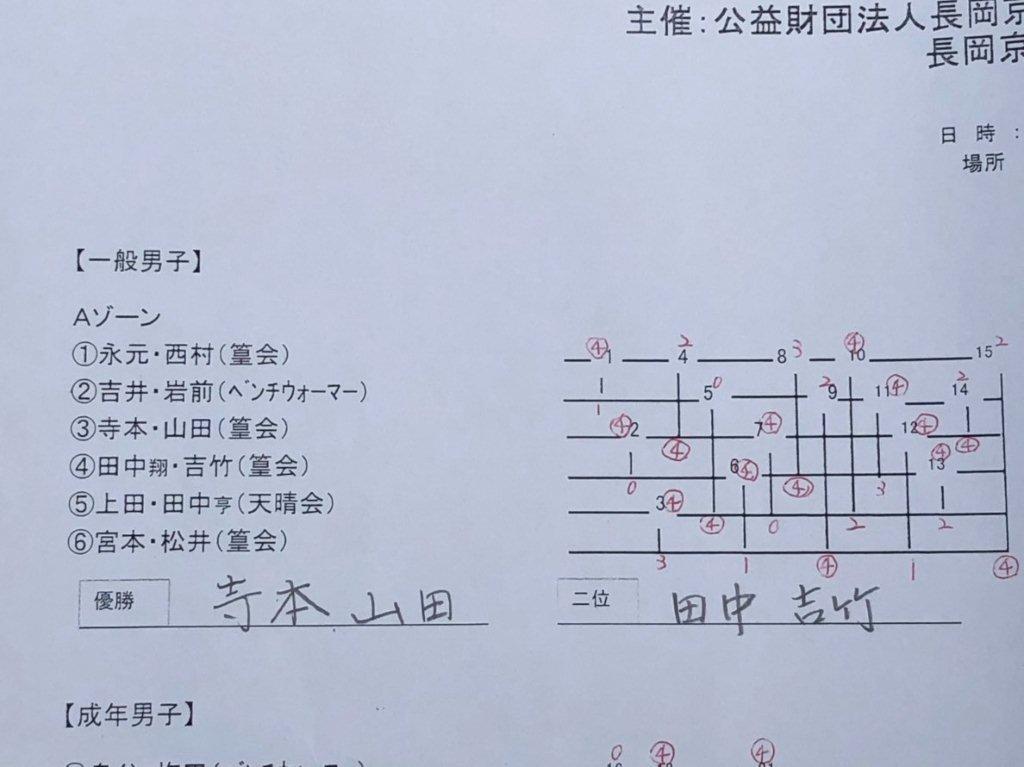 主催：公益財団法人長岡京
長岡京
日 時 ：
場所
【一般男子】
Aゾーン
①永元・西村（篁会）
②吉井・岩前（ベンチウォーマー）
③寺本・山田（篁会）
④田中翔・吉竹（篁会）
⑤上田・田中亨（天晴会）
⑥宮本・松井（篁会）
④ 1 2 4 8 3 ④ 10 15 2
1 5 0 2 9 11 ④ 2 14
④ 2 ④ 7 ④ 12 ④ ④
0 6 ④ ④ 3 ④ 13
3 ④ ④ 0 2 2
3 1 ④ 1 ④
優勝 寺本 山田
二位 田中 吉竹
【成年男子】
0 ④ ④